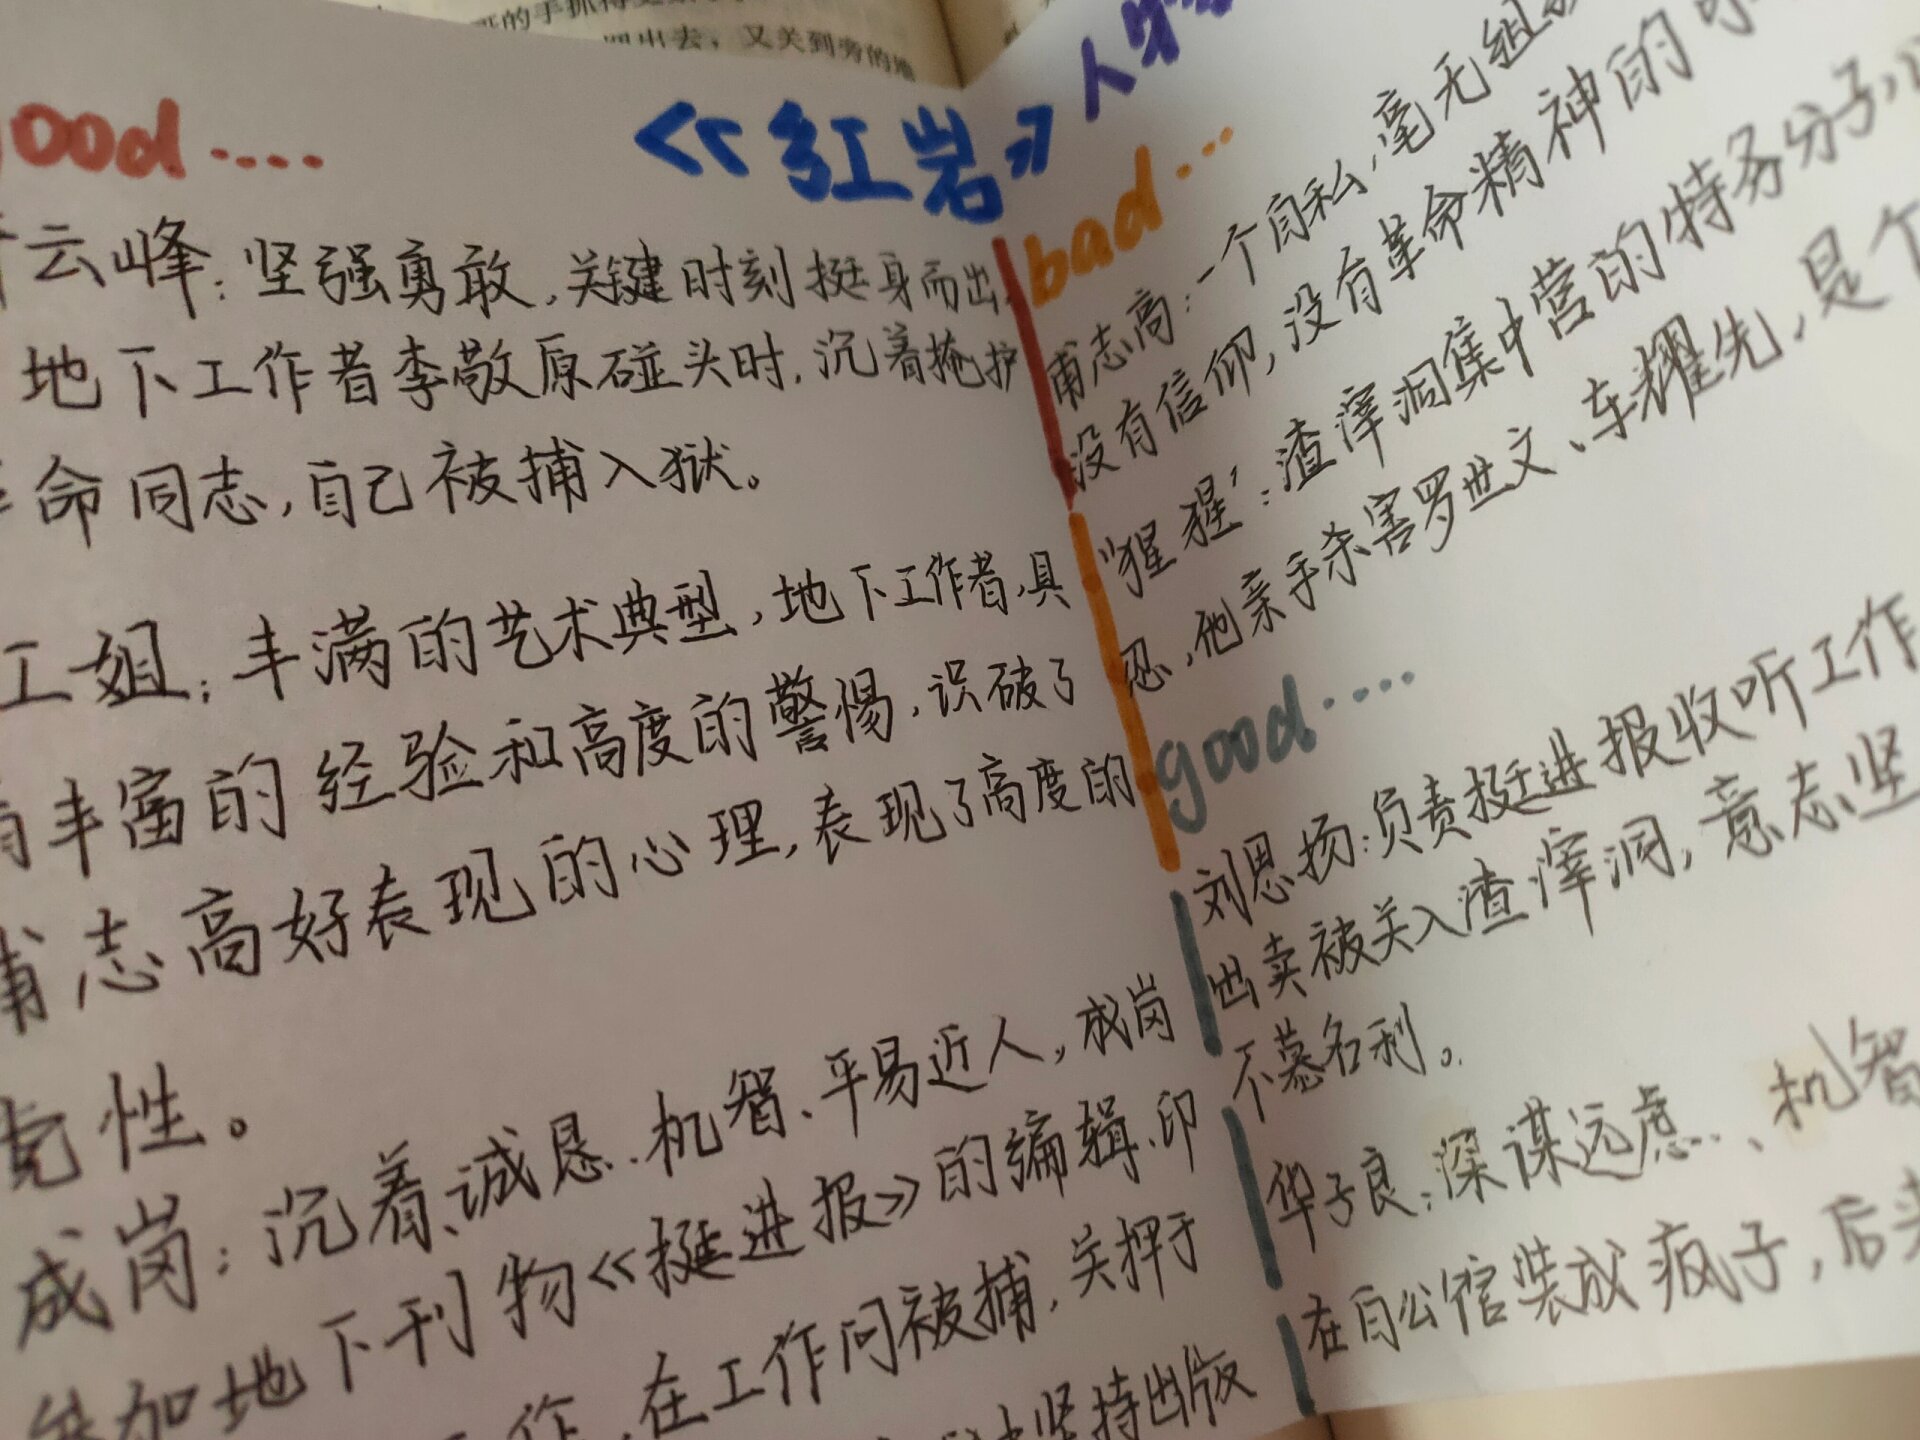 的手抓
出去，又关到旁的地
《红岩》人物
good....
云峰：坚强勇敢，关键时刻挺身而出，
地下工作者李敬原碰头时，沉着掩护
命同志，自己被捕入狱。
江姐：丰满的艺术典型，地下工作者，具
有丰富的经验和高度的警惕，识破了
甫志高好表现的心理，表现了高度的
党性。
成岗：沉着、诚恳、机智、平易近人，成岗
参加地下刊物《挺进报》的编辑、印
作，在工作间被捕，关押于
坚持出版
bad...
甫志高：一个自私，毫无组
没有信仰，没有革命精神的
“猩猩”：渣滓洞集中营的特务分子，
忍，他亲手杀害罗世文、车耀先，是个
good....
刘思扬：负责挺进报收听工作
出卖被关入渣滓洞，意志坚
不慕名利。
华子良：深谋远虑、机智
在白公馆装成疯子，后来